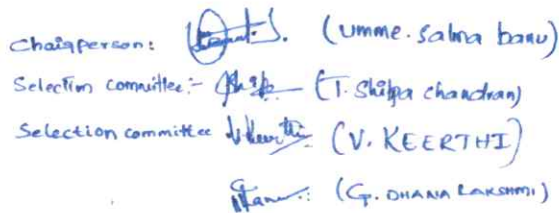 Chairperson: (Umme. Salma banu)
Selection committee:- (T. Shilpa chandran)
Selection committee V. Keerthi (V. KEERTHI)
(G. DHANA LAKSHMI)